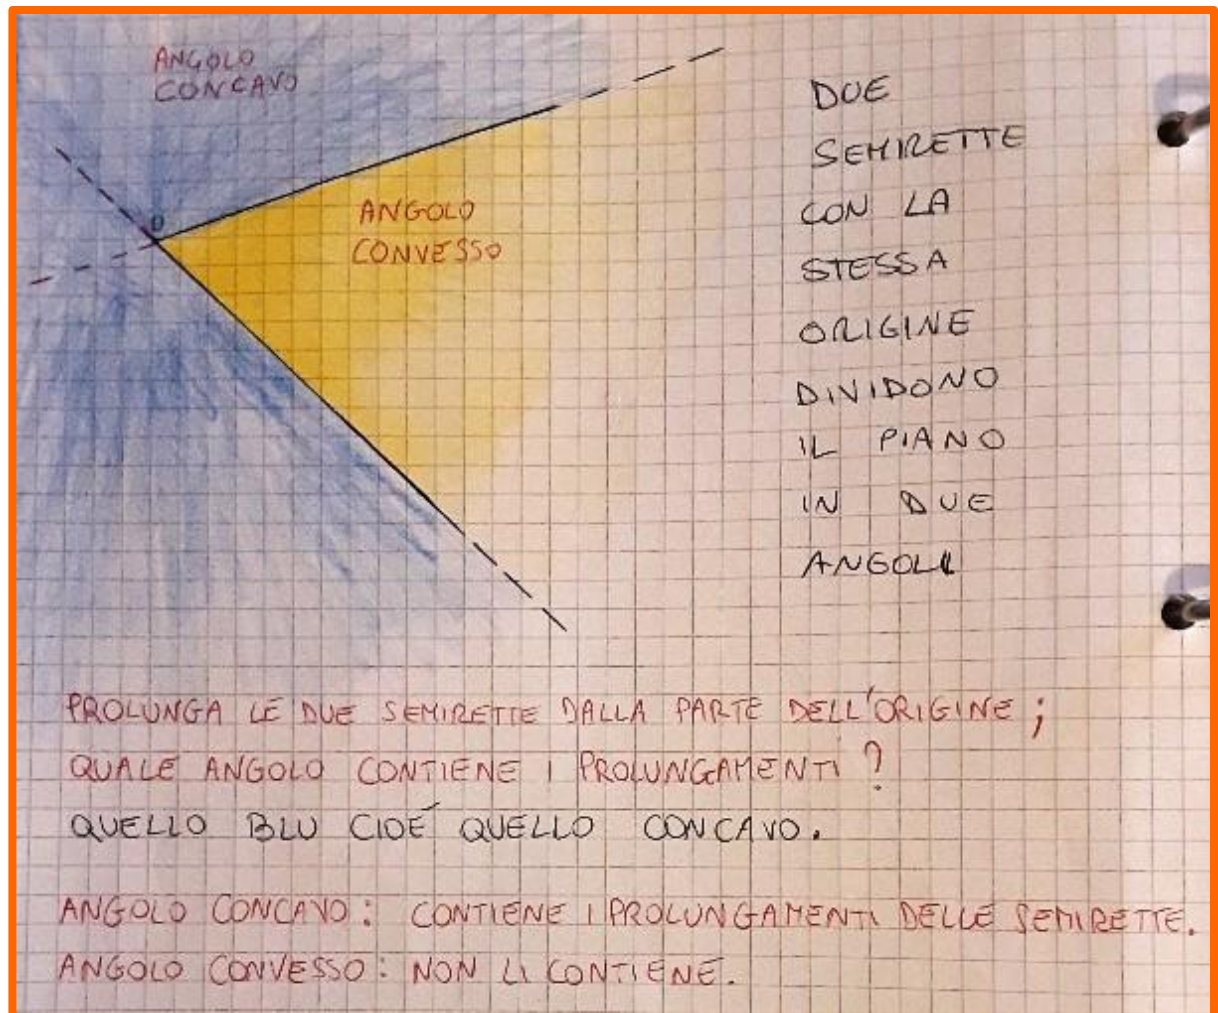 ANGOLO
CONCAVO
O
ANGOLO
CONVESSO
DUE
SEMIRETTE
CON LA
STESSA
ORIGINE
DIVIDONO
IL PIANO
IN DUE
ANGOLI
PROLUNGA LE DUE SEMIRETTE DALLA PARTE DELL'ORIGINE;
QUALE ANGOLO CONTIENE I PROLUNGAMENTI?
QUELLO BLU CIOÉ QUELLO CONCAVO.
ANGOLO CONCAVO: CONTIENE I PROLUNGAMENTI DELLE SEMIRETTE.
ANGOLO CONVESSO: NON LI CONTIENE.